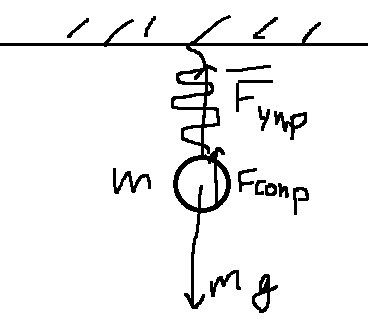 Fупр
m Fсопр
mg